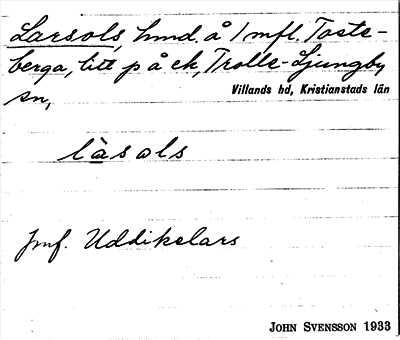 Larsols, hmd. å 1 mfl. Toste-
berga, litt på ek, Trolle-Ljungby
sn,
Villands hd, Kristianstads län
làsols
Jmf. Uddikelars
JOHN SVENSSON 1933